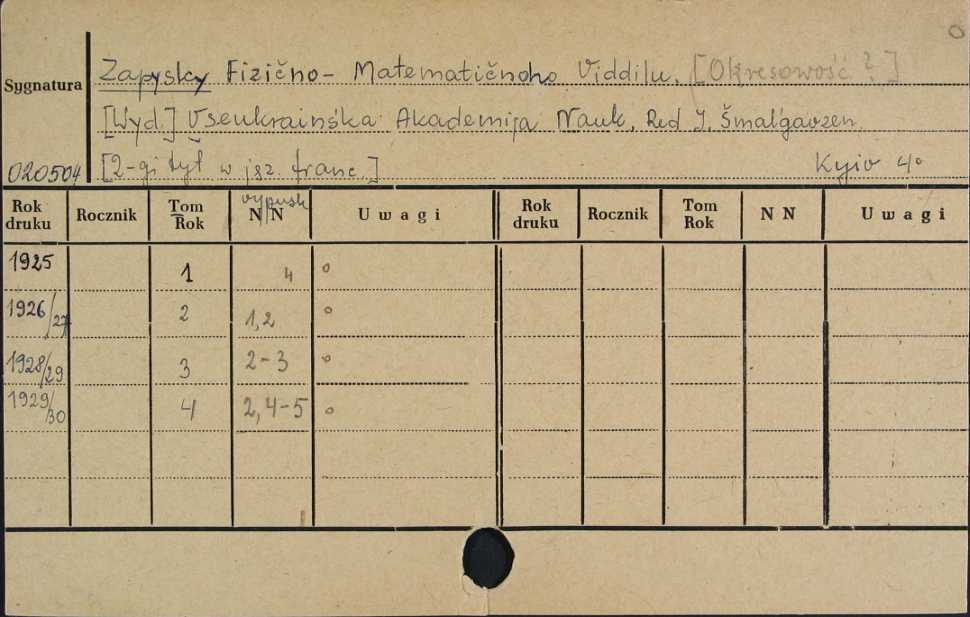 Zapysky Fizično-Matematičnoho Viddilu. [Okresowość ?]
Sygnatura
[Wyd.] Vseukraińska Akademija Nauk, Red I. Šmal'gavzen.
020504 [2-gi tyt w jęz. franc.] Kyiv 4°
Rok druku Rocznik Tom Rok vypusk N N Uwagi Rok druku Rocznik Tom Rok N N Uwagi
1925 1 4 °
1926/27 2 1,2 °
1928/29 3 2-3 °
1929/30 4 2,4-5 °